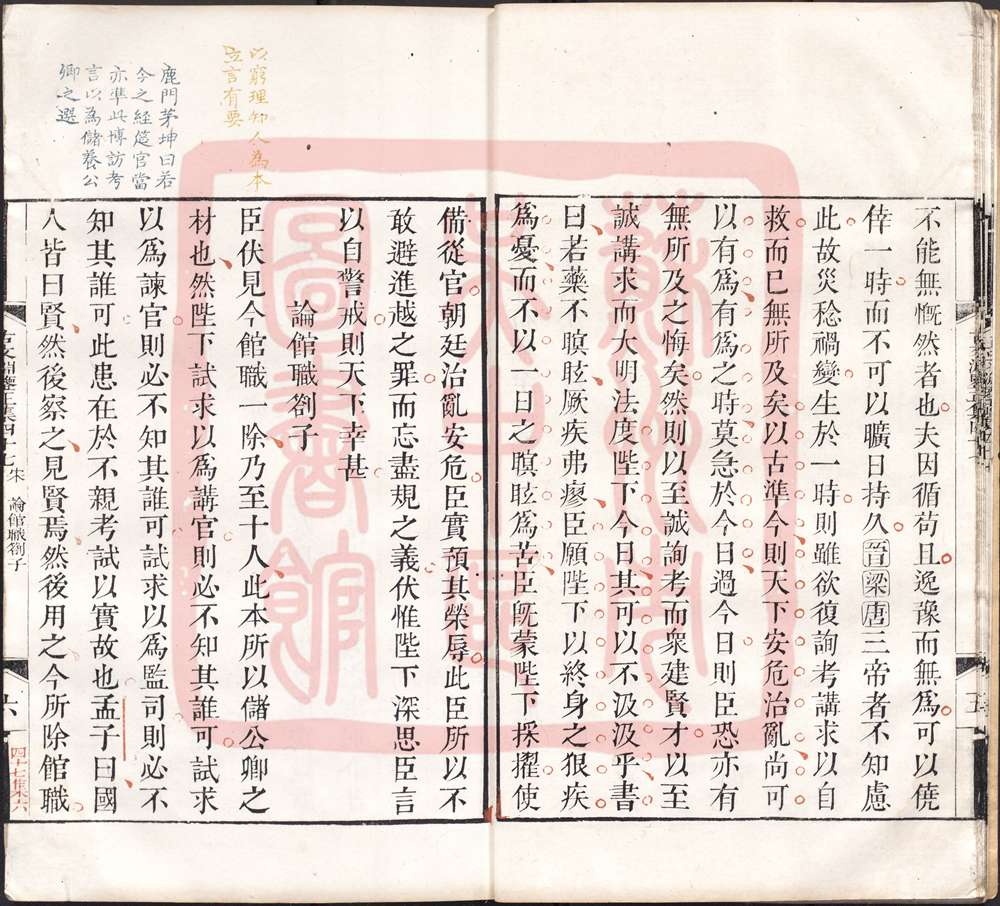 不能無慨然者也夫因循苟且逸豫而無爲可以僥
倖一時而不可以曠日持久晉梁唐三帝者不知慮
此故災稔禍變生於一時則雖欲復詢考講求以自
救而已無所及矣以古準今則天下安危治亂尚可
以有爲有爲之時莫急於今日過今日則臣恐亦有
無所及之悔矣然則以至誠詢考而衆建賢才以至
誠講求而大明法度陛下今日其可以不汲汲乎書
曰若藥不瞑眩厥疾弗瘳臣願陛下以終身之狠疾
爲憂而不以一日之瞑眩爲苦臣旣蒙陛下採擢使
五
以窮理知人為本
立言有要
鹿門茅坤曰若
今之經筵官當
亦準此博訪考
言以為儲養公
卿之選
備從官朝廷治亂安危臣實預其榮辱此臣所以不
敢避進越之罪而忘盡規之義伏惟陛下深思臣言
以自警戒則天下幸甚
論館職劄子
臣伏見今館職一除乃至十人此本所以儲公卿之
材也然陛下試求以爲講官則必不知其誰可試求
以爲諫官則必不知其誰可試求以爲監司則必不
知其誰可此患在於不親考試以實故也孟子曰國
人皆曰賢然後察之見賢焉然後用之今所除館職
古文淵鑒正集四十七 宋 論館職劄子
六
四十七集六
蘇州大學圖書館